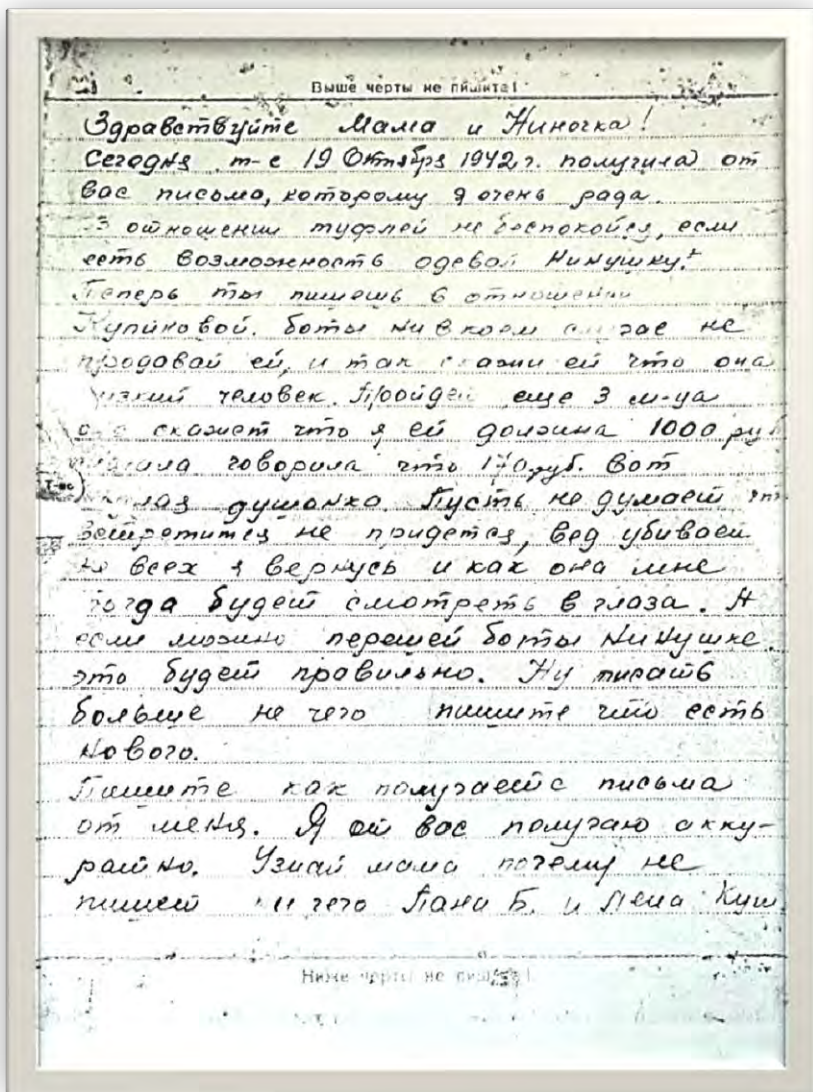 Выше черты не пишите!
Здравствуйте Мама и Ниночка!
Сегодня т-е 19 Октября 1942 г. получила от
вас письмо, которому я очень рада.
В отношении туфлей не беспокойся, если
есть возможность одевай Нинушку.
Теперь ты пишешь в отношении
боты ни в коем случае не
продавай ей, и так скажи ей что она
низкий человек. Пройдет еще 3 м-ца
она скажет что я ей должна 1000 руб
говорила что 170 руб. Вот
душонка. Пусть не думает что
встретится не придется, вед убивает
не всех я вернусь и как она мне
тогда будет смотреть в глаза. А
если можно перешей боты Нинушке
это будет правильно. Ну писать
больше не чего пишите что есть
нового.
Пишите как получаете письма
от меня. Я от вас получаю акку-
ратно. Узнай мама почему не
пишет ни чего Б. и Куш
Ниже черты не пишите!